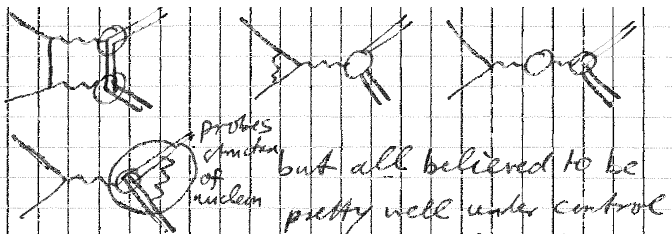 probes
structure
of
nucleon
but all believed to be
pretty well under control